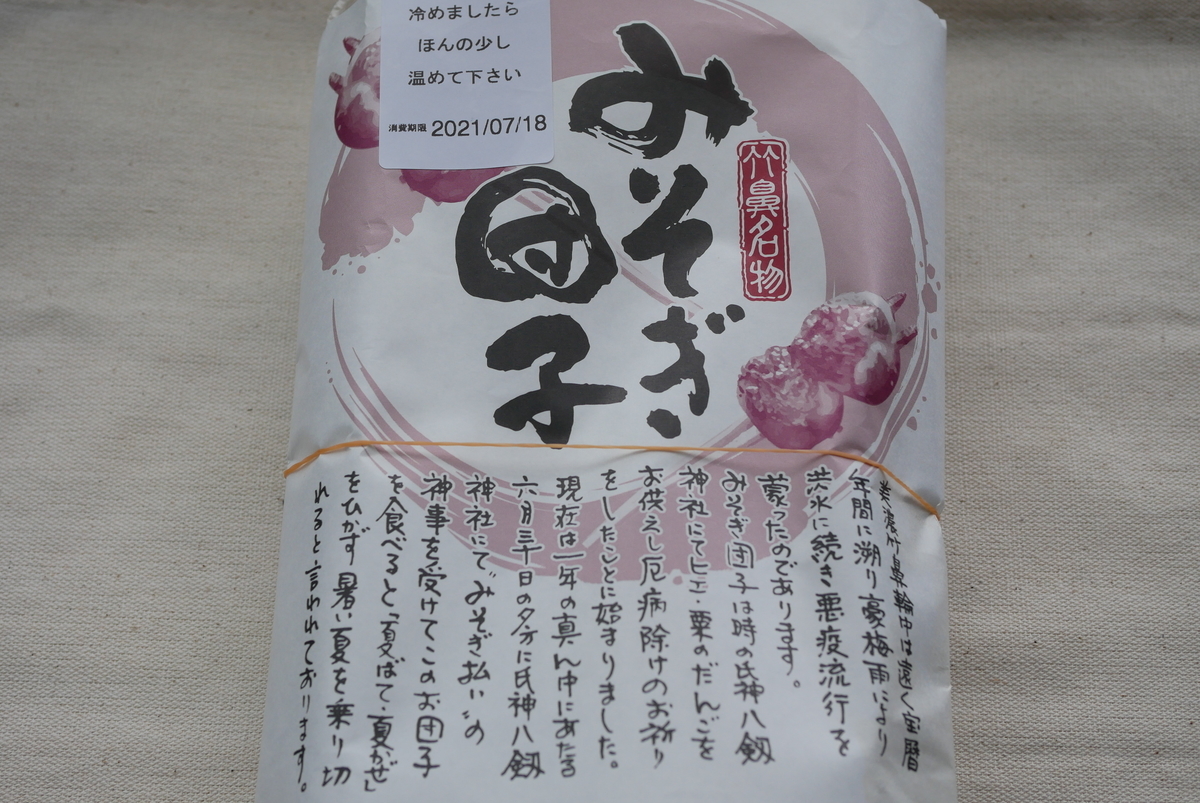 冷めましたら
ほんの少し
温めて下さい
消費期限 2021/07/18
みそぎ
団子
竹鼻名物
美濃竹鼻輪中は遠く宝暦
年間に溯り豪梅雨により
洪水に続き悪疫流行を
蒙ったのであります。
みそぎ団子は時の氏神八剱
神社にてヒエ・粟のだんごを
お供えし厄病除けのお祈り
をしたことに始まりました。
現在は一年の真ん中にあたる
六月三十日の夕方に氏神八剱
神社にて〝みそぎ払い〟の
神事を受けてこのお団子
を食べると「夏ばて・夏かぜ」
をひかず暑い夏を乗り切
れると言われております。